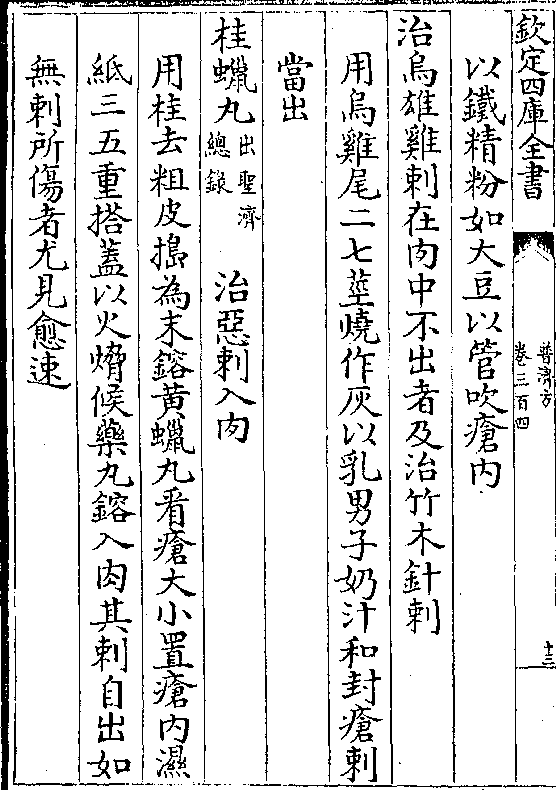 欽定四庫全書
普濟方
卷三百四
十三
以鐵精粉如大豆以管吹瘡内
治烏雄雞刺在肉中不出者及治竹木針刺
用烏雞尾二七莖燒作灰以乳男子奶汁和封瘡刺
當出
桂蠟丸出聖濟總錄　治惡刺入肉
用桂去粗皮搗為末鎔黄蠟丸看瘡大小置瘡内濕
紙三五重搭蓋以火熁候藥丸鎔入肉其刺自出如
無刺所傷者尤見愈速